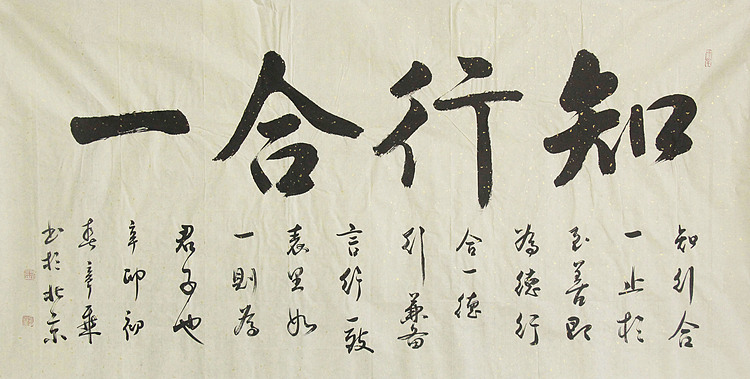 知行合一
知行合
一止於
至善即
為德行
合一德
行兼备
言行一致
表里如
一則為
君子也
辛卯初
春
书於北京